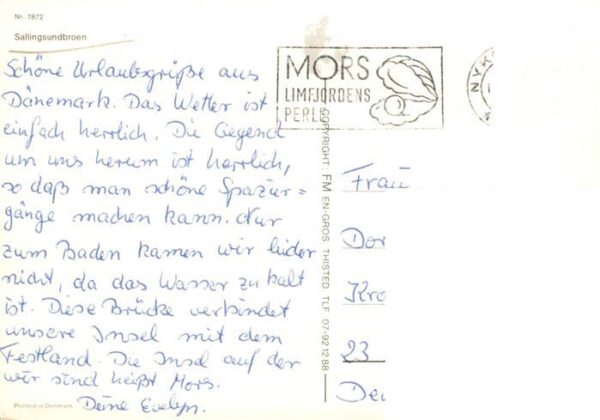 Nr. 7872
Sallingsundbroen
Schöne Urlaubsgrüße aus
Dänemark. Das Wetter ist
einfach herrlich. Die Gegend
um uns herum ist herrlich,
so daß man schöne Spazier=
gänge machen kann. Nur
zum Baden kamen wir leider
nicht, da das Wasser zu kalt
ist. Diese Brücke verbindet
unsere Insel mit dem
Festland. Die Insel auf der
wir sind heißt Mors.
Deine Evelyn.
Printed in Denmark
COPYRIGHT: FM EN-GROS, THISTED. TLF. 07-921288
MORS
LIMFJORDENS
PERLE
NYK
Frau
Dor
Kro
23